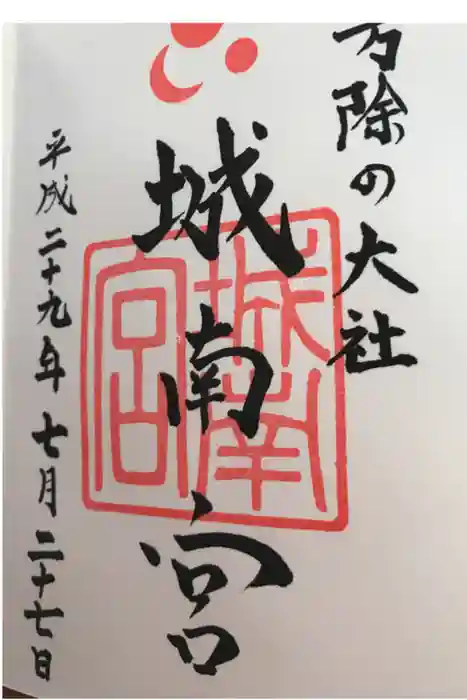 方除の大社
城南宮
城南宮
平成二十九年七月二十七日